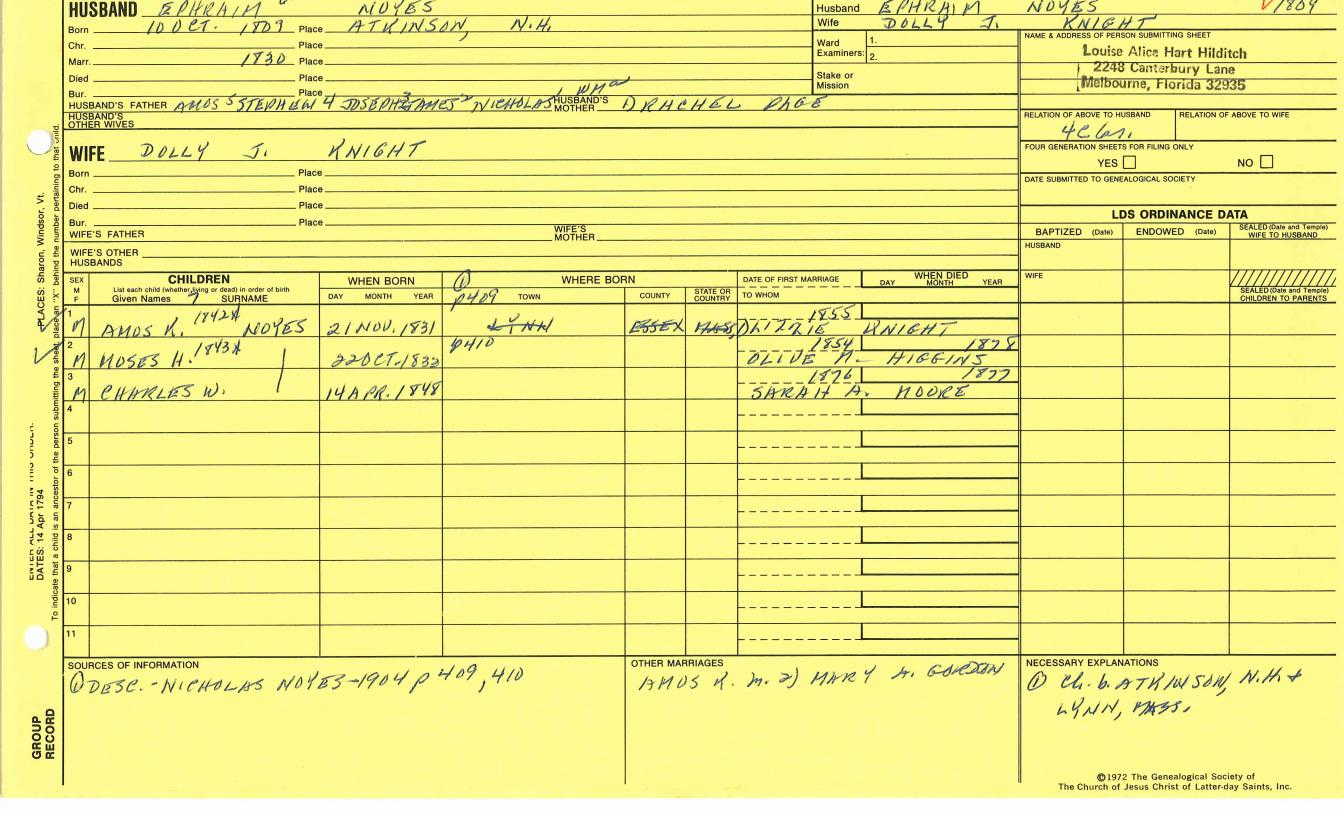 HUSBAND EPHRAIM NOYES
Born 10 OCT. 1809 Place ATKINSON, N.H.
Chr. Place
Marr. 1830 Place
Died Place
Bur. Place
HUSBAND'S FATHER AMOS 5 STEPHEN 4 JOSEPH 3 JAMES 2 NICHOLAS 1 WM HUSBAND'S MOTHER RACHEL PAGE
HUSBAND'S OTHER WIVES
WIFE DOLLY J. KNIGHT
Born Place
Chr. Place
Died Place
Bur. Place
WIFE'S FATHER WIFE'S MOTHER
WIFE'S OTHER HUSBANDS
Husband EPHRAIM NOYES √1809
Wife DOLLY J. KNIGHT
Ward Examiners: 1. 2.
Stake or Mission
NAME & ADDRESS OF PERSON SUBMITTING SHEET
Louise Alice Hart Hilditch
2248 Canterbury Lane
Melbourne, Florida 32935
RELATION OF ABOVE TO HUSBAND RELATION OF ABOVE TO WIFE
FOUR GENERATION SHEETS FOR FILING ONLY
YES NO
DATE SUBMITTED TO GENEALOGICAL SOCIETY
LDS ORDINANCE DATA
BAPTIZED (Date) ENDOWED (Date) SEALED (Date and Temple) WIFE TO HUSBAND
HUSBAND
WIFE
SEALED (Date and Temple) CHILDREN TO PARENTS
SEX M F CHILDREN WHEN BORN ① WHERE BORN DATE OF FIRST MARRIAGE WHEN DIED
List each child (whether living or dead) in order of birth
Given Names 7 SURNAME DAY MONTH YEAR p409 TOWN COUNTY STATE OR COUNTRY TO WHOM DAY MONTH YEAR
1 1842A 1855
M AMOS K. NOYES 21 NOV. 1831 LYNN ESSEX MASS LIZZIE KNIGHT
2 1843A p410 1854 1878
M MOSES H. 22 OCT. 1832 OLIVE M. HIGGINS
3 1876 1877
M CHARLES W. 14 APR. 1848 SARAH A. MOORE
4
5
6
7
8
9
10
11
SOURCES OF INFORMATION
① DESC. - NICHOLAS NOYES - 1904 p 409, 410
OTHER MARRIAGES
AMOS K. m. 2) MARY A. GORDON
NECESSARY EXPLANATIONS
① Ch. b. ATKINSON, N.H. +
LYNN, MASS.
©1972 The Genealogical Society of
The Church of Jesus Christ of Latter-day Saints, Inc.
PLACES: Sharon, Windsor, Vt.
To indicate that a child is an ancestor of the person submitting the sheet, place an "X" behind the number pertaining to that child.
ENTER ALL DATA IN THIS ORDER:
DATES: 14 Apr 1794
GROUP
RECORD